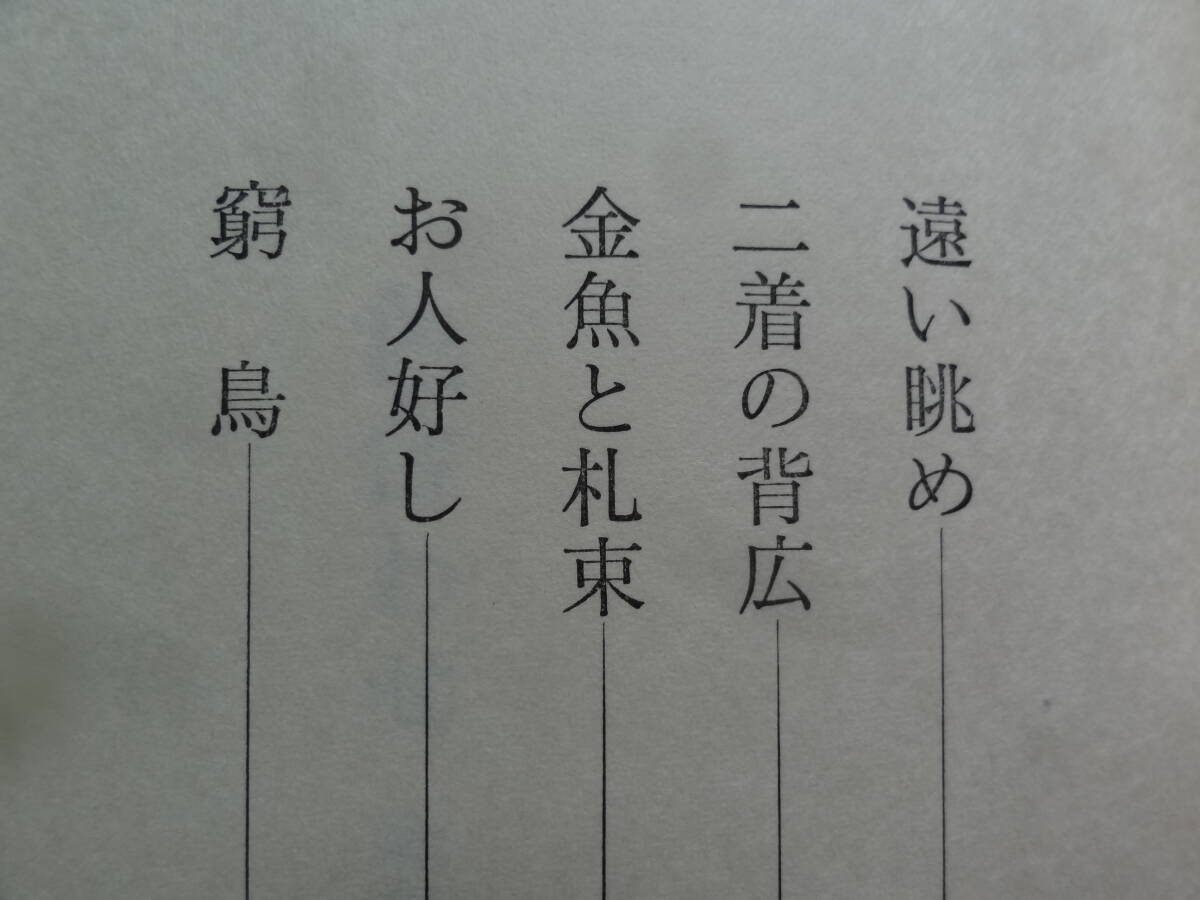 遠い眺め
二着の背広
金魚と札束
お人好し
窮鳥